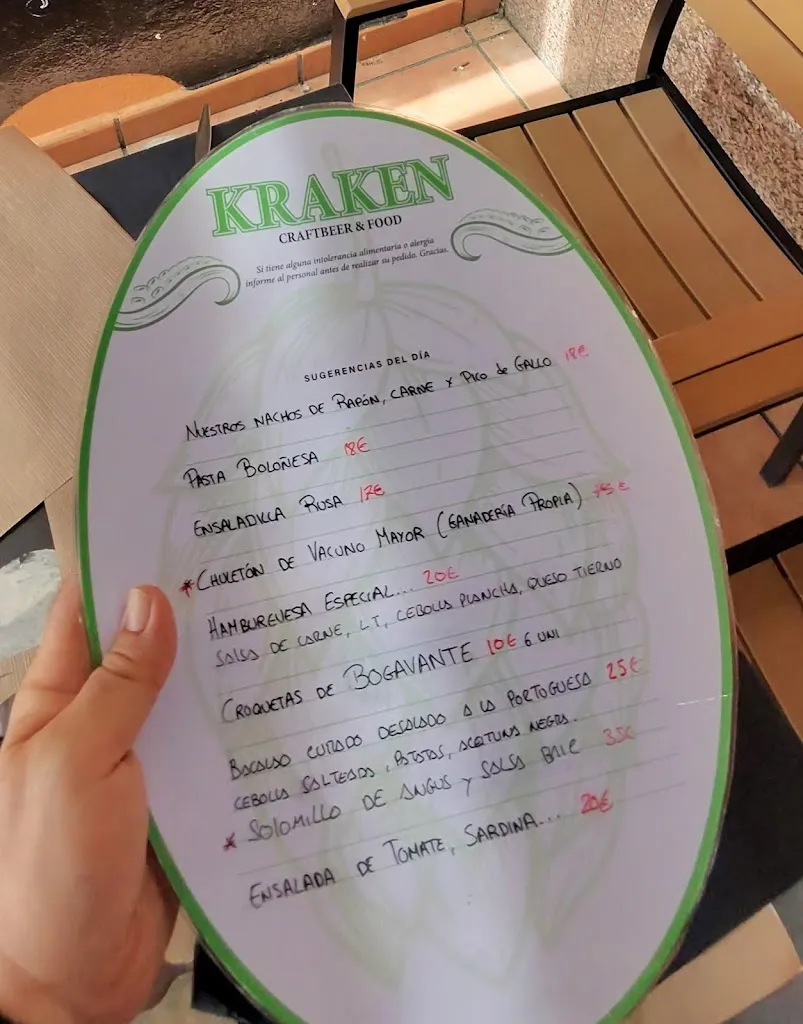 KRAKEN
CRAFTBEER & FOOD
Si tiene alguna intolerancia alimentaria o alergia
informe al personal antes de realizar su pedido. Gracias.
SUGERENCIAS DEL DÍA
NUESTROS NACHOS DE RAPÓN, CARNE Y PICO de GALLO 18€
PASTA BOLOÑESA 18€
ENSALADILLA RUSA 12€
* CHULETÓN DE VACUNO MAYOR (GANADERÍA PROPIA)
HAMBURGUESA ESPECIAL... 20€
SALSA DE CARNE, L.T, CEBOLLA PLANCHA, QUESO TIERNO
CROQUETAS DE BOGAVANTE 10€ 6 UNI
BACALAO CURADO DESALADO A LA PORTOGUESA 25€
CEBOLLA SALTEADA, PATATAS, ACEITUNA NEGRA.
* SOLOMILLO DE ANGUS Y SALSA 35€
ENSALADA DE TOMATE, SARDINA... 20€